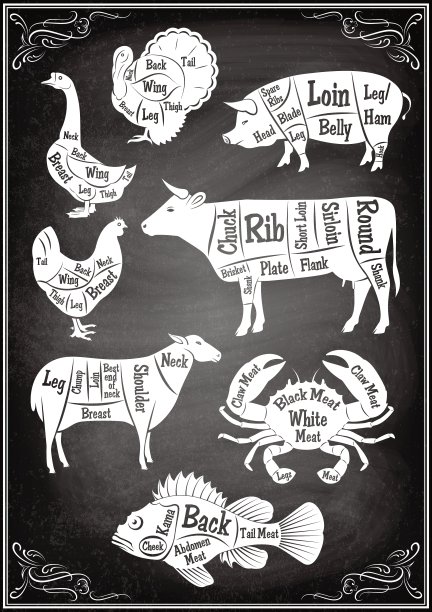 Back
Tail
Neck
Wing
Breast
Leg
Thigh
Spare
Ribs
Loin
Leg/
Ham
Blade
Belly
Head
Leg
Hock
Neck
Back
Breast
Wing
Tail
Leg
Thigh
Chuck
Rib
Short Loin
Sirloin
Round
Brisket
Plate
Flank
Shank
Shank
Tail
Back
Neck
Wing
Breast
Thigh
Leg
Neck
Leg
Chump
Loin
Best
end
of
neck
Shoulder
Breast
Claw Meat
Claw Meat
Black Meat
White
Meat
Legs
Meat
Kama
Back
Cheek
Abdomen
Meat
Tail Meat